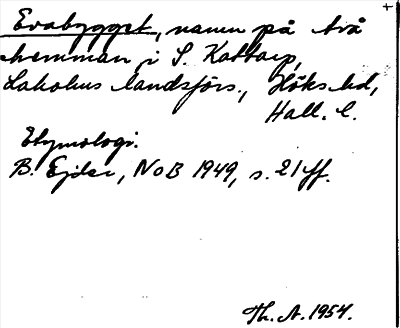 Evabygget, namn på två
hemman i S. Kattarp,
Laholms landsförs., Höks hd,
Hall. l.
Etymologi.
B. Ejder, NoB 1949, s. 21 ff.
Th. A. 1954.